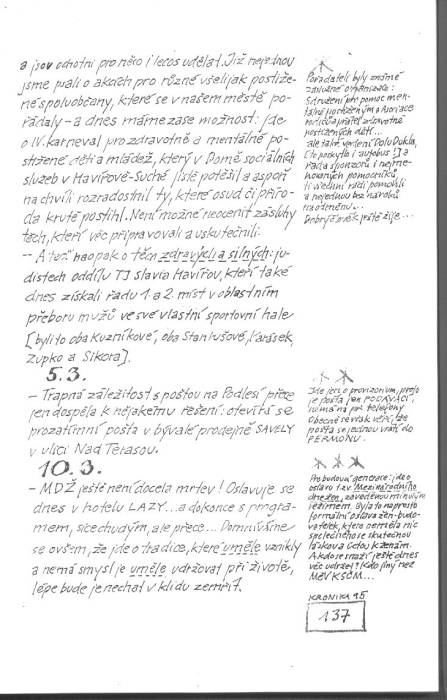 a jsou ochotni pro něco i lecos udělat. Již nejednou
jsme psali o akcích pro různé všelijak postiže-
né spoluobčany, které se v našem městě po-
řádaly – a dnes máme zase možnost: jde
o IV. karneval pro zdravotně a mentálně po-
stižené děti a mládež, který v Domě sociálních
služeb v Havířově-Suché jistě potěšil a aspoň
na chvíli rozradostnil ty, které osud či příro-
da krutě postihl. Není možné neocenit zásluhy
těch, kteří věc připravovali a uskutečnili.
– A teď naopak o těch zdravých a silných: ju-
distech oddílu TJ Slavia Havířov, kteří také
dnes získali řadu 1. a 2. míst v oblastním
přeboru mužů ve své vlastní sportovní hale
[byli to oba Kuzníkové, oba Stanìušové, Karásek,
Zupko a Sikora].
5.3.
– Trapná záležitost s poštou na Podlesí přece
jen dospěla k nějakému řešení: otevírá se
prozatímní pošta v bývalé prodejně SAVELY
v ulici Nad Terasou.
10.3.
– MDŽ ještě není docela mrtev! Oslavuje se
dnes v hotelu LAZY... a dokonce s progra-
mem, sice chudým, ale přece... Domníváme
se ovšem, že jde o tradice, které uměle vznikly
a nemá smysl je uměle udržovat při životě,
lépe bude je nechat v klidu zemřít.
Pořadateli byly známé
záslužné organizace:
Sdružení pro pomoc men-
tálně postiženým a Asociace
rodičů a přátel zdravotně
postižených dětí...
ale také vedení Dolu Dukla,
[to poskytlo i autobus!] a
řada sponzorů i nejme-
novaných pomocníků,
ti všichni rádi pomohli
a nejednou bez nároků
na odměnu...
Dobrý člověk ještě žije...
Jde jen o provizorium, proto
je pošta jen PODÁVACÍ,
nemá na př. telefony
Obecně se však věří, že
pošta se jednou vrátí do
PERMONU.
Pro budoucí generace: jde o
oslavu tzv. Mezinárodního
dne žen, zavedenou minulým
režimem. Byla to naprosto
formální oslava žen-budo-
vatelek, která neměla nic
společného se skutečnou
láskou a úctou k ženám.
A kdo se snaží ještě dnes
věc udržet? Kdo jiný než
MěV KSČM...
KRONIKA 95
137